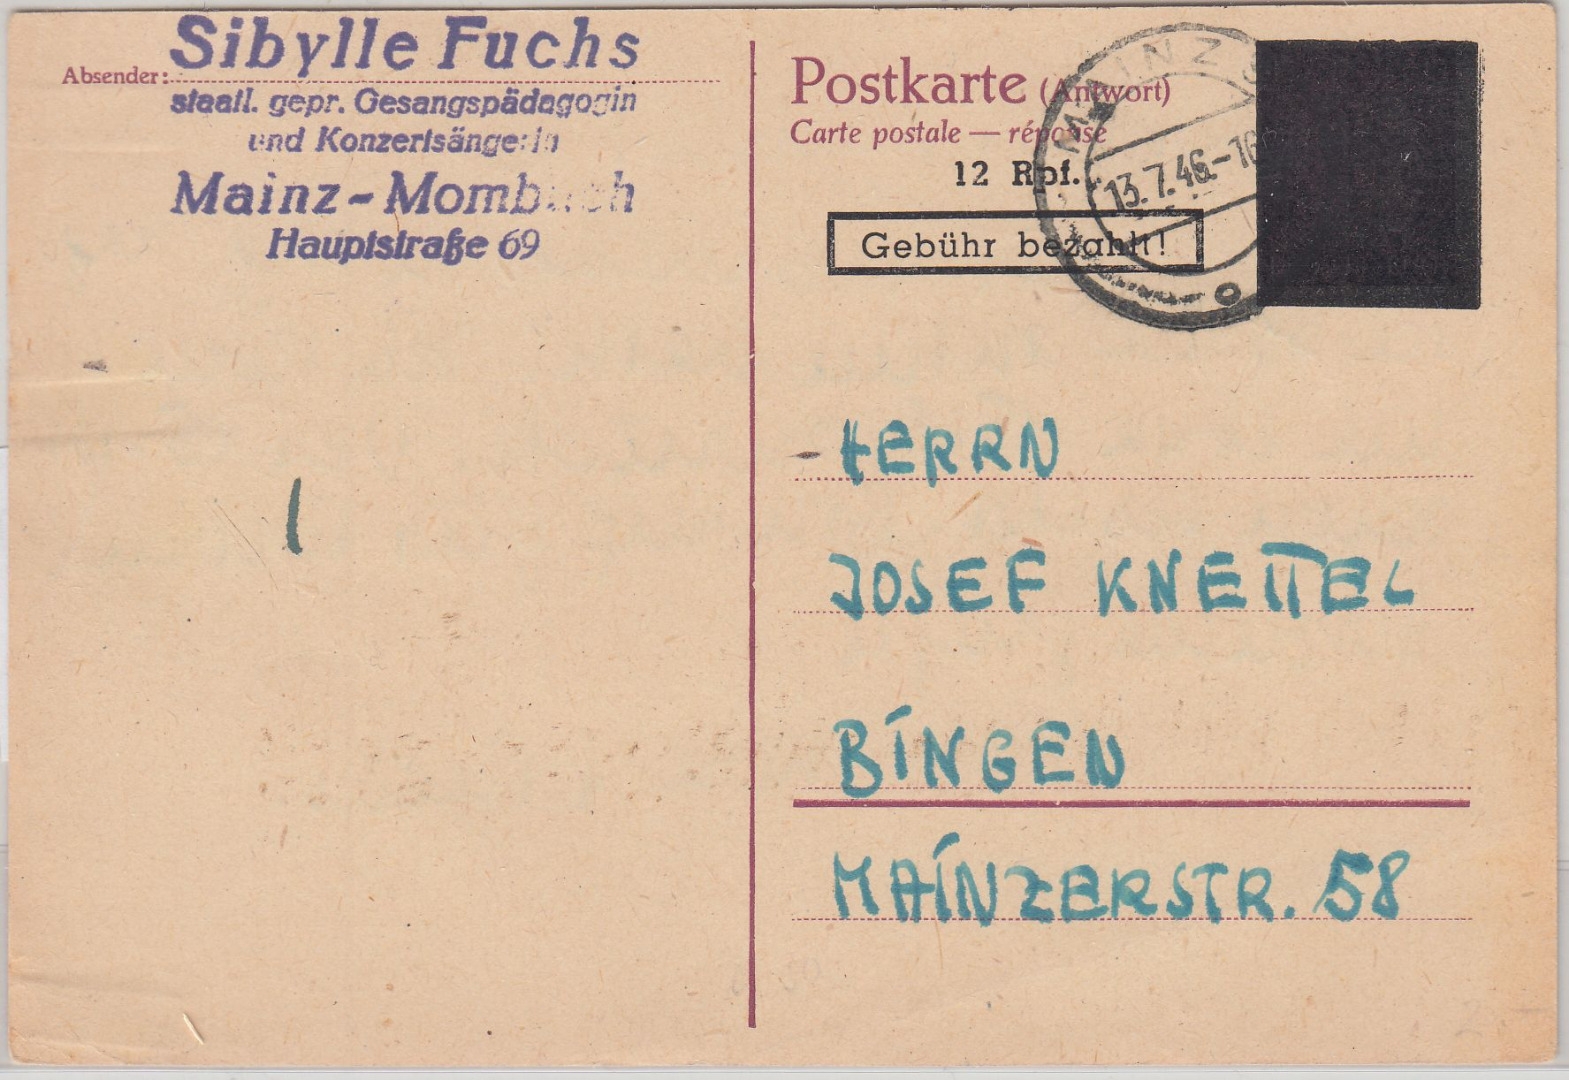 Sibylle Fuchs
Absender:
staatl. gepr. Gesangspädagogin
und Konzertsängerin
Mainz-Mombach
Hauptstraße 69
Postkarte (Antwort)
Carte postale — réponse
12 Rpf.
Gebühr bezahlt!
MAINZ
13.7.46.-16
HERRN
JOSEF KNETTEL
BINGEN
MAINZERSTR. 58